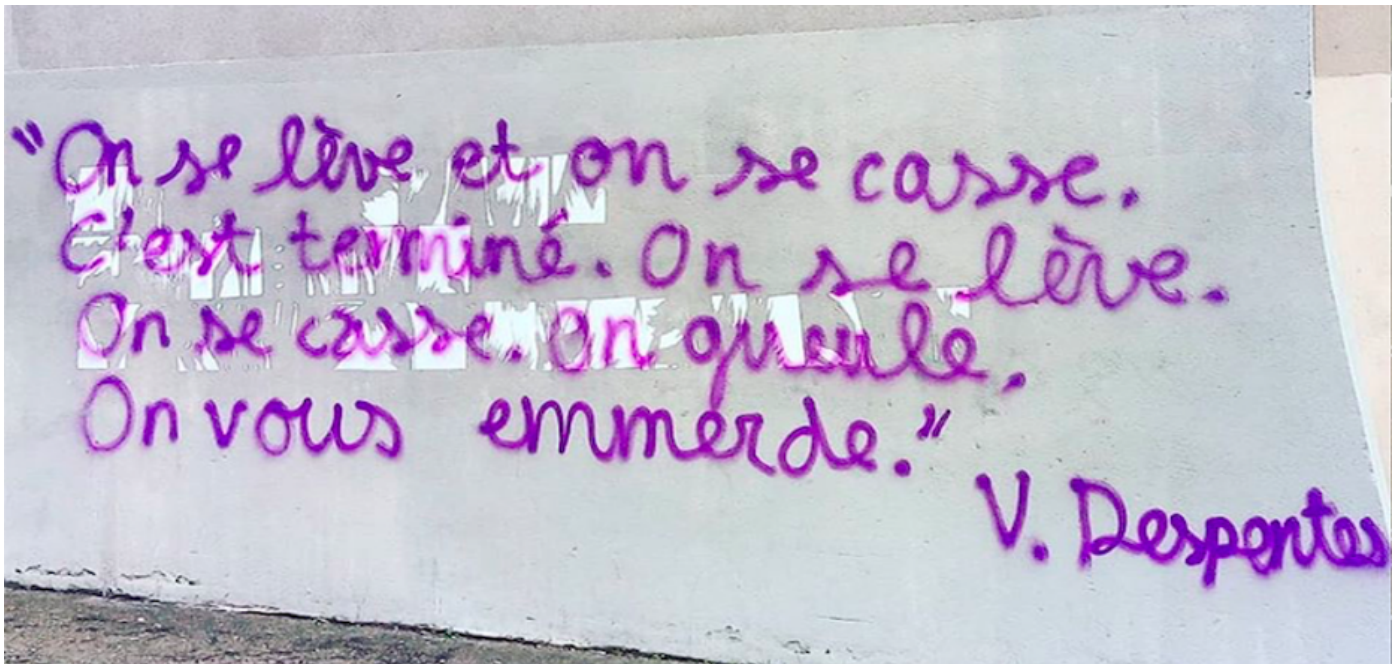 "On se lève et on se casse.
C'est terminé. On se lève.
On se casse. On gueule.
On vous emmerde."
V. Despentes